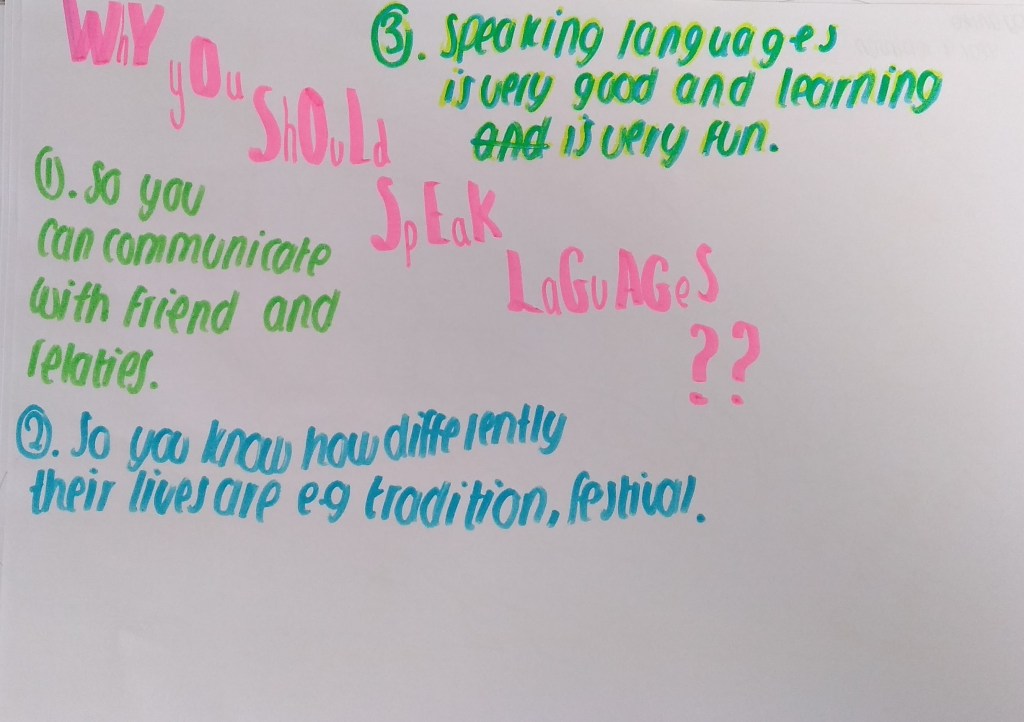 WhY
yOu
ShOuLd
SpEaK
LaGuAGeS
??
①. So you
can communicate
with friend and
relaties.
②. So you know how differently
their lives are e.g tradition, festival.
③. Speaking languages
is very good and learning
and is very fun.